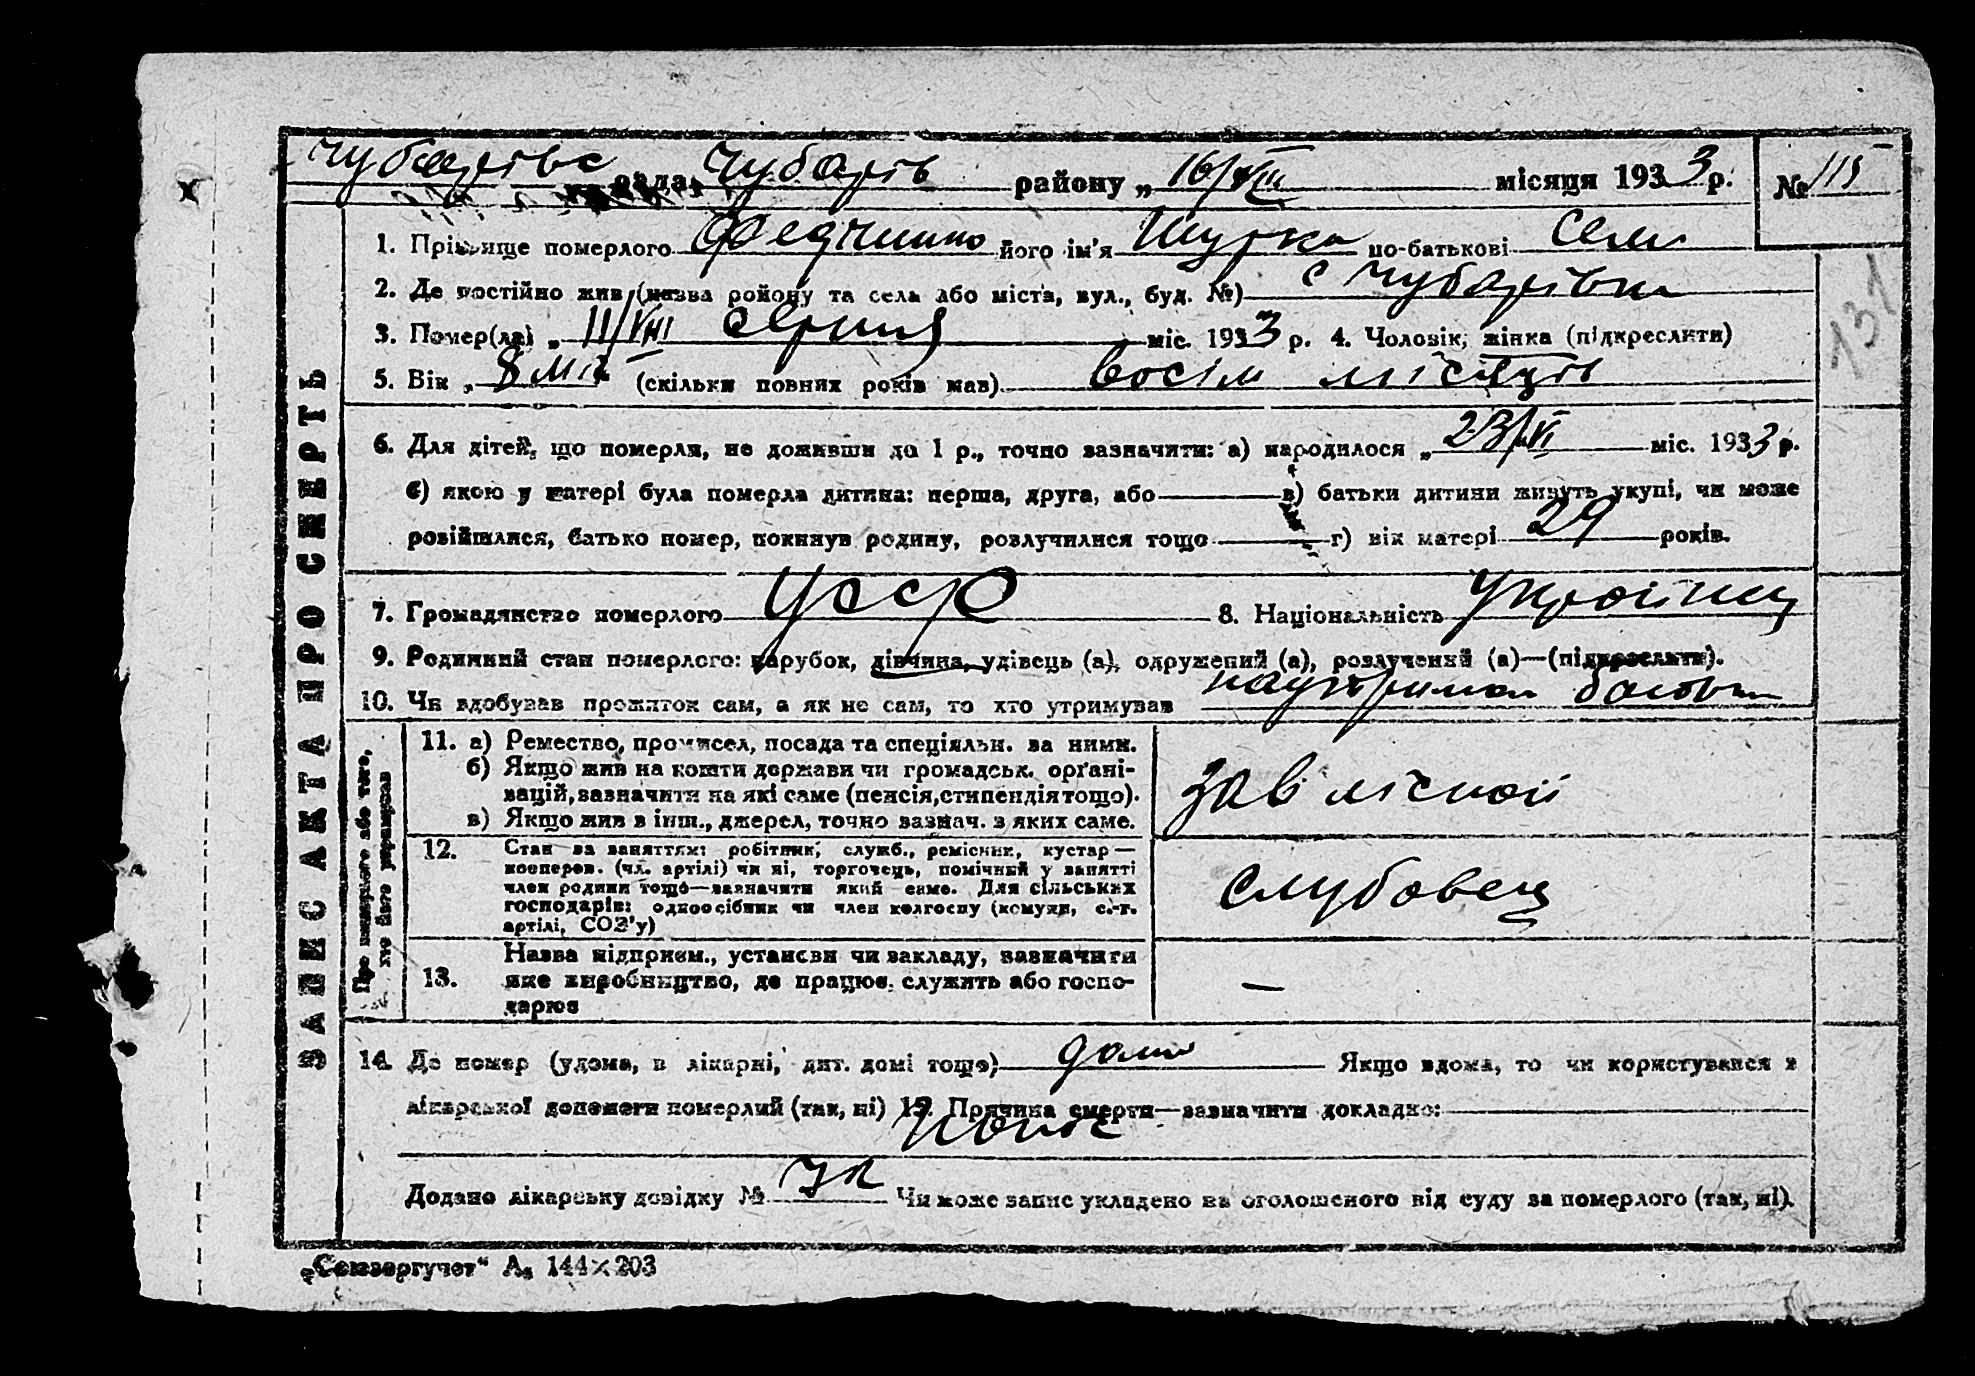 Чубарівс рада, Чубарів району „ 16/VIII місяця 1933 р. № 115
1. Прізвище померлого Федчишин його ім'я Шурка по-батькові Сем
2. Де постійно жив (назва району та села або міста, вул., буд. №) с Чубарівки
3. Помер(ла) „ 11/VIII серпня міс. 1933 р. 4. Чоловік, жінка (підкреслити)
131
5. Вік „ 8 міс (скільки повних років мав) восім місяців
6. Для дітей, що померли, не доживши до 1 р., точно зазначити: а) народилося „ 23/VI міс. 1933 р.
б) якою у матері була померла дитина: перша, друга, або в) батьки дитини живуть укупі, чи може
розійшлися, батько помер, покинув родину, розлучилися тощо г) вік матері 29 років.
7. Громадянство померлого УССР 8. Національність Українец
9. Родинний стан померлого: парубок, дівчина, удівець (а), одружений (а), розлучений (а)—(підкреслити).
10. Чи здобував прожиток сам, а як не сам, то хто утримував
ЗАПИС АКТА ПРО СМЕРТЬ
Про померлого або того,
хто його утримував
11. а) Ремество, промисел, посада та спеціяльн. за ними.
б) Якщо жив на кошти держави чи громадськ. органі-
зацій, зазначити на які саме (пенсія, стипендія тощо).
в) Якщо жив в інш., джерел, точно зазнач. з яких саме.
12. Стан за заняттям: робітник, служб., ремісник, кустар—
кооперов. (чл. артілі) чи ні, торговець, помічний у занятті
член родини тощо—зазначити який саме. Для сільських
господарів: одноосібник чи член колгоспу (комуни, с.-г.
артілі, СОЗ'у)
13. Назва підприєм., установи чи закладу, зазначити
яке виробництво, де працює, служить або госпо-
дарює
—
14. Де помер (удома, в лікарні, дит. домі тощо) дома Якщо вдома, то чи користувався з
лікарської допомоги померлий (так, ні) 15. Причина смерти—зазначити докладно:
Понос
Додано лікарську довідку № Чи може запис укладено на оголошеного від суду за померлого (так, ні).
„Союзоргучет" А₅ 144×203